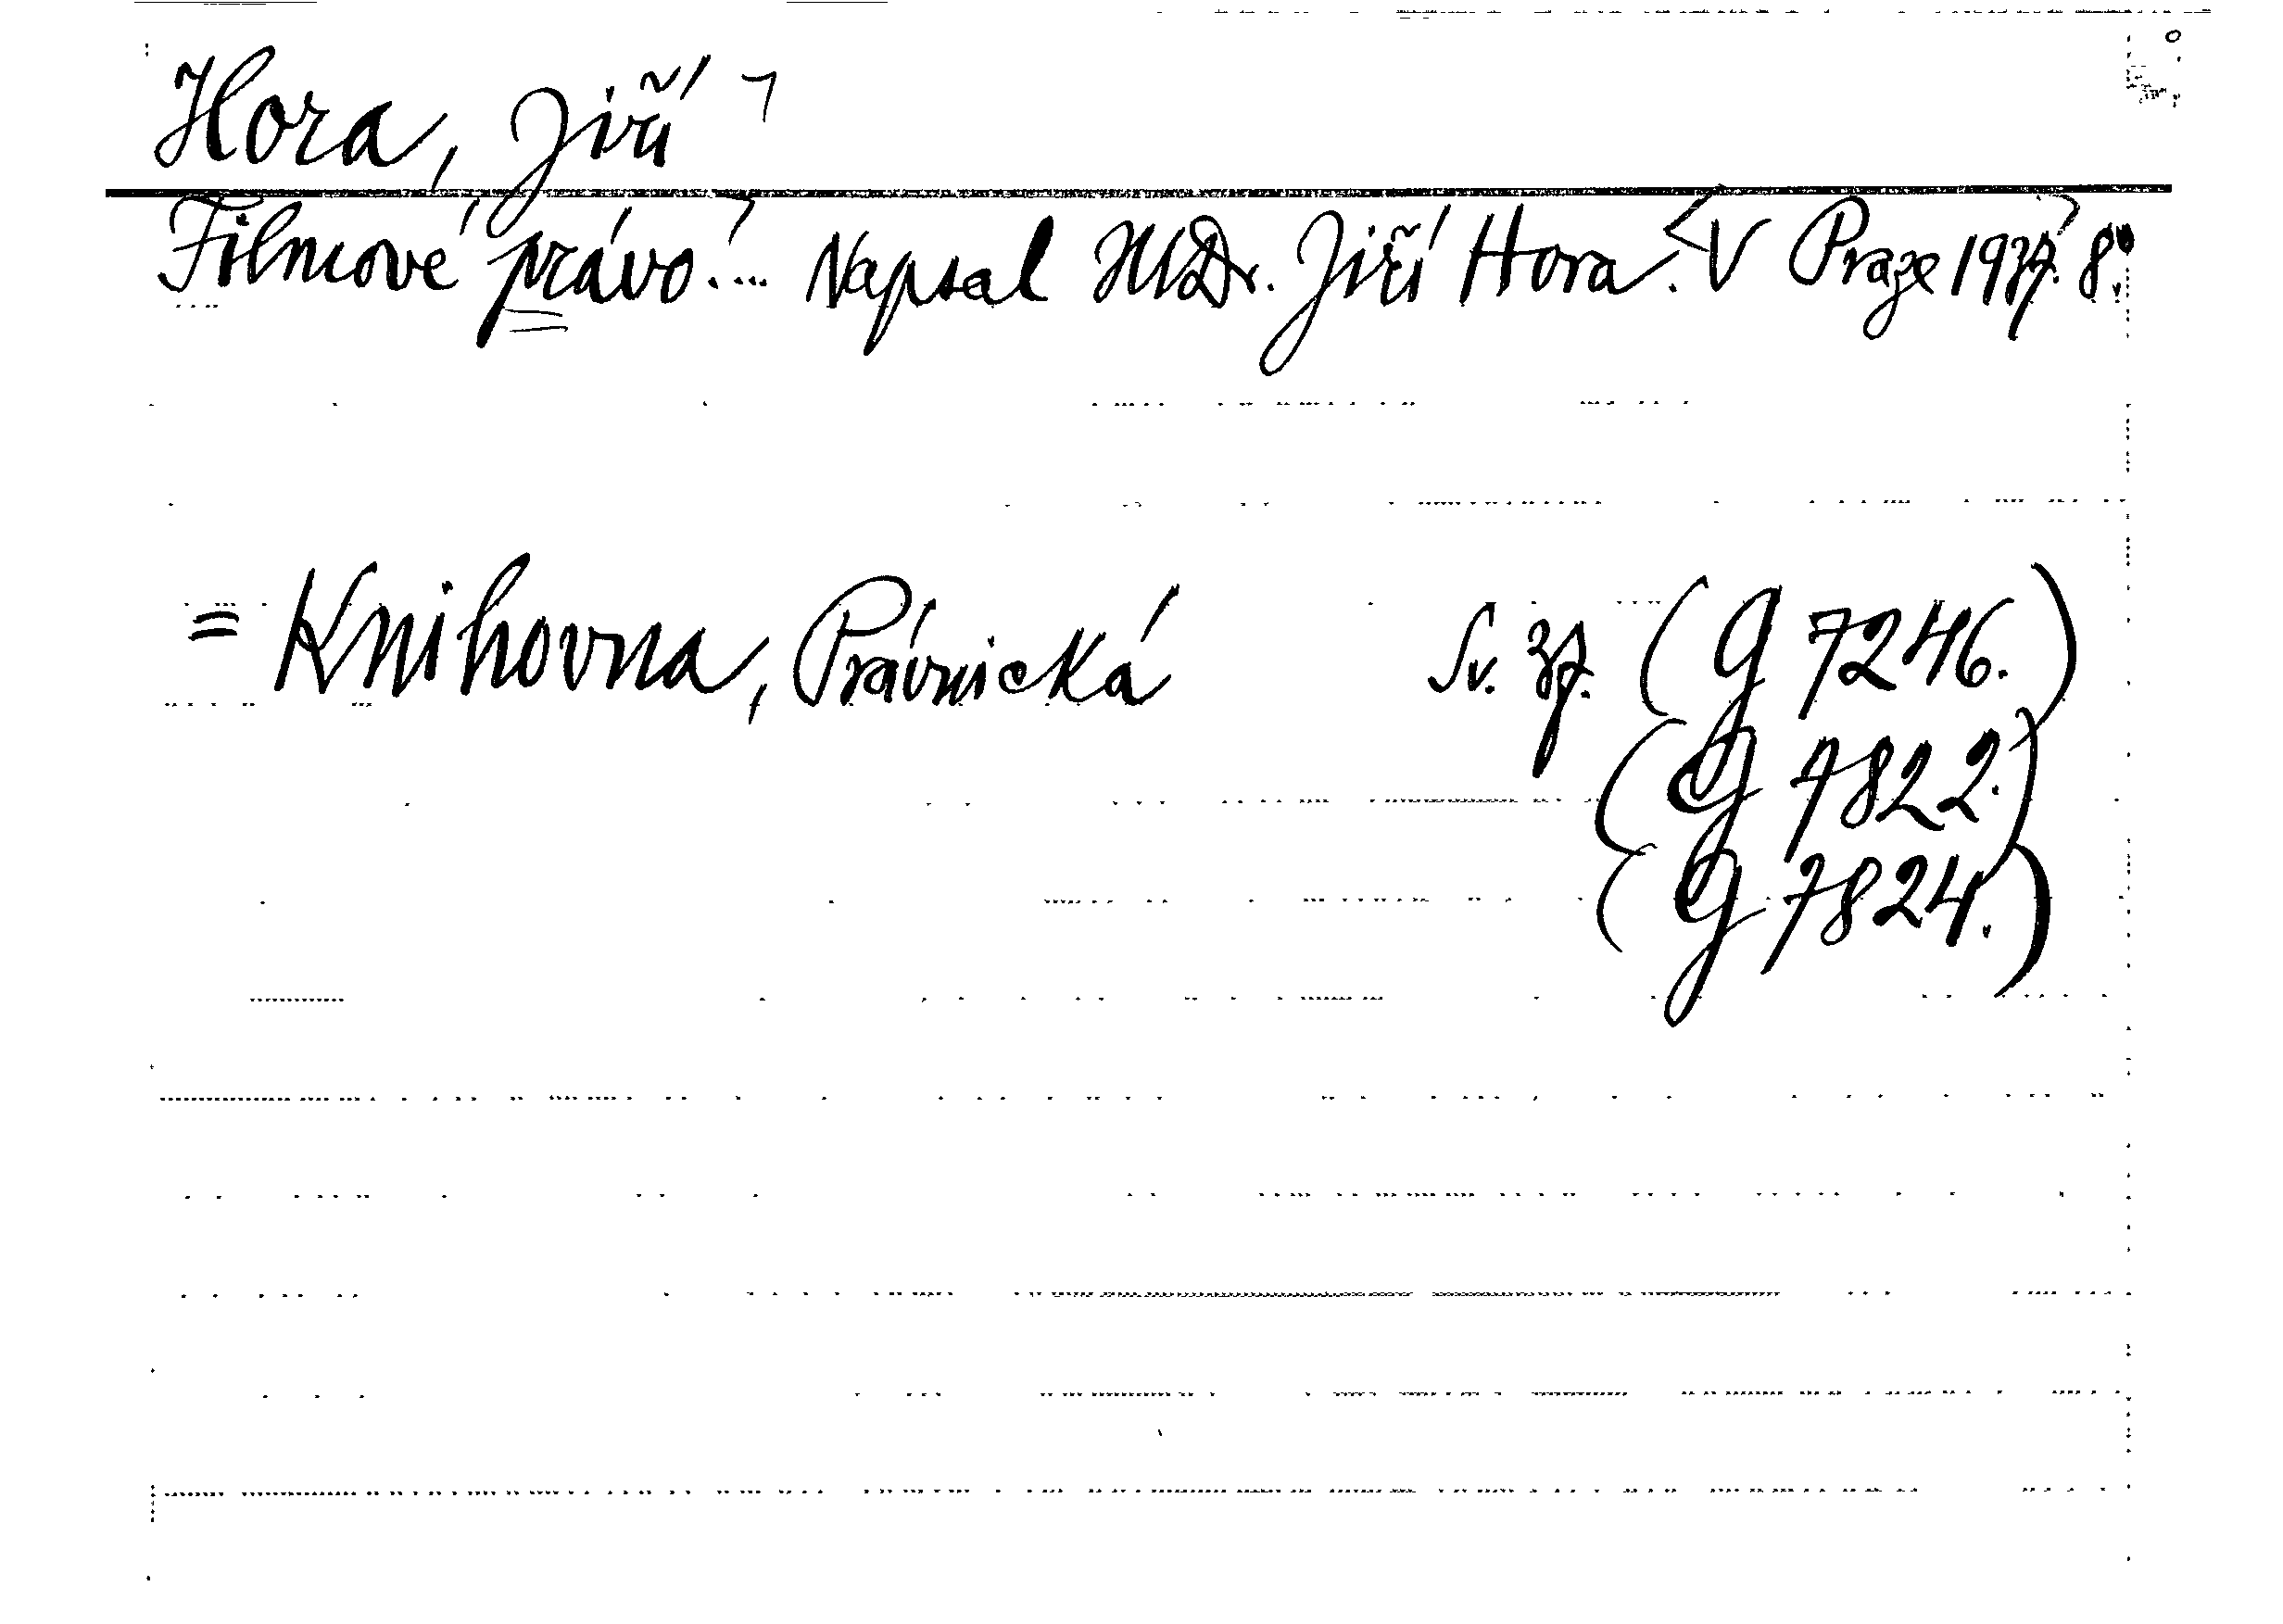 Hora, Jiří
Filmové právo. ... Napsal JUDr. Jiří Hora. V Praze 1937. 8.°
= Knihovna, Právnická Sv. 37. (G 7246.)
(G 7822.)
(G 7824.)